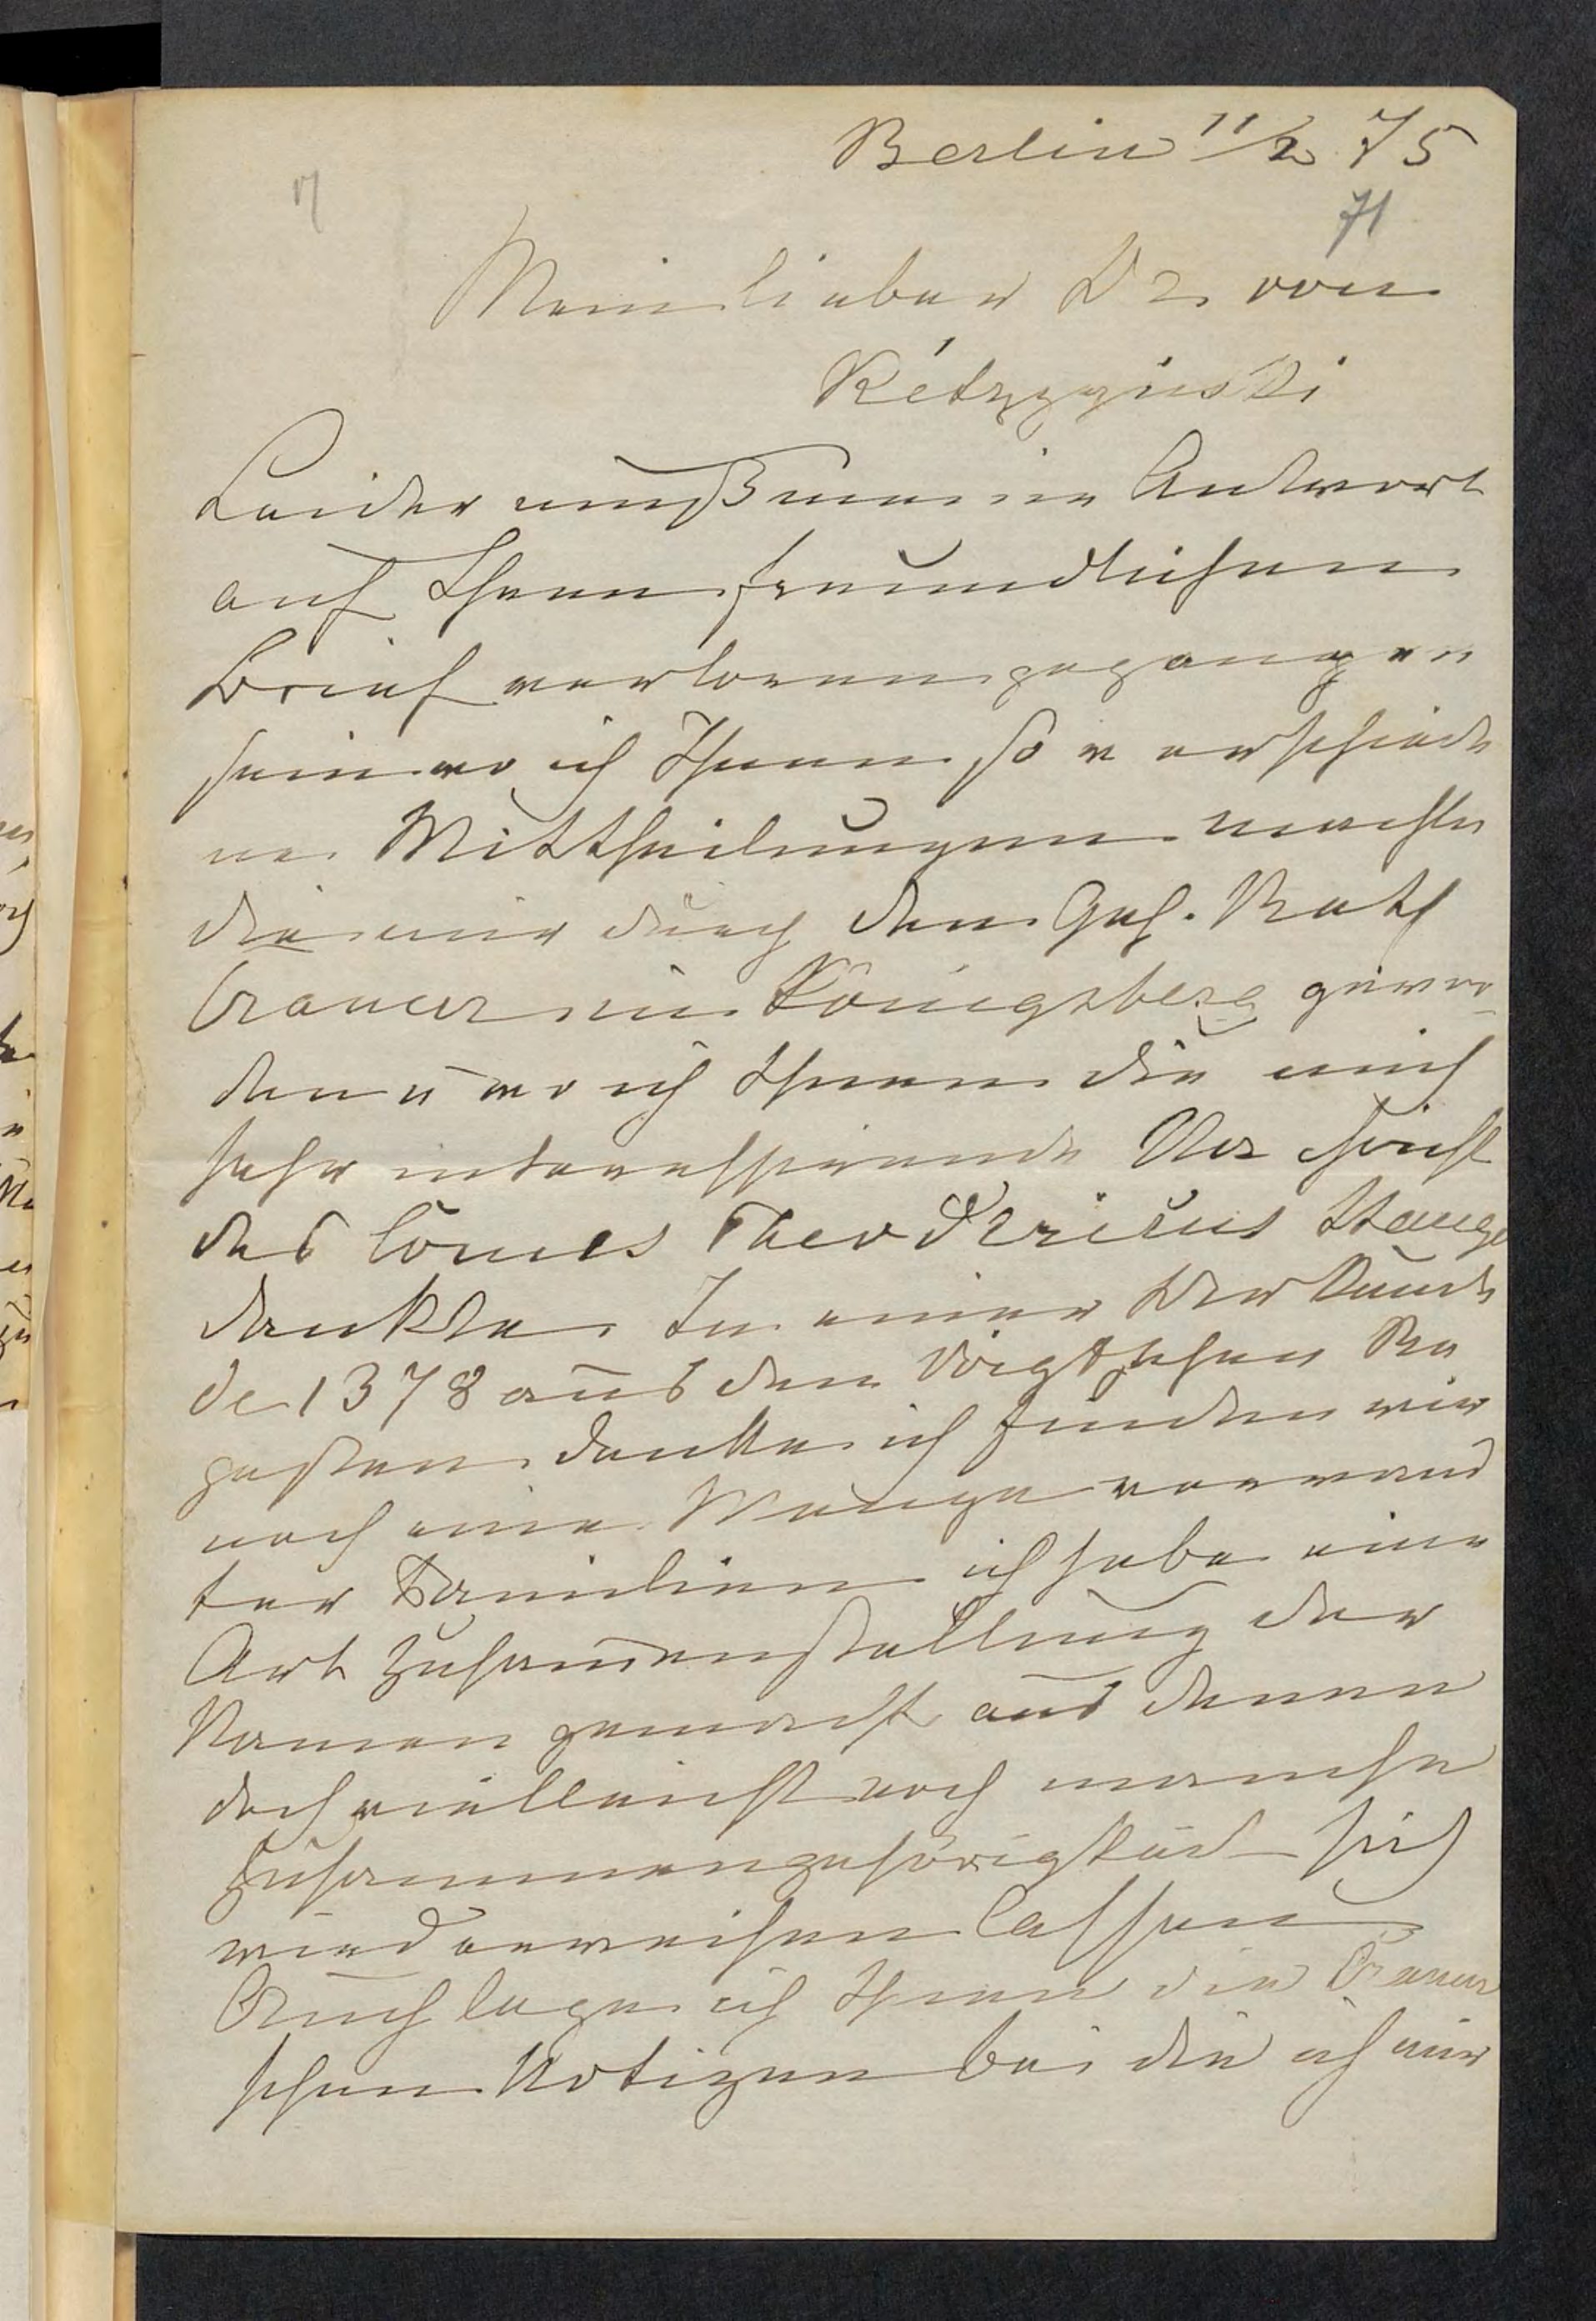 Berlin 11/2 75
71
Mein lieber Dr von
Kétrzyński
Leider muß meine Antwort
auf Ihren freundlichen
Brief verloren gegangen
sein wo ich Ihnen so verschiede
ne Mittheilungen machte
die mir durch den Geh. Rath
Crauer in Königsberg gewor-
den u wo ich Ihnen die mich
sehr interessirende Nachricht
des Comes Theodericus Stange
dankte. In einer Urkunde
de 1378 aus den Voigtschen Re
gesten denke ich finden wir
noch eine Menge verwand
ter Familien ich habe eine
Art Zusammenstellung der
Namen gemacht aus denen
doch vielleicht noch manche
Zusammengehörigkeit sich
wird erweisen lassen
Auch lege ich Ihnen die Crauer
schen Notizen bei die ich mir